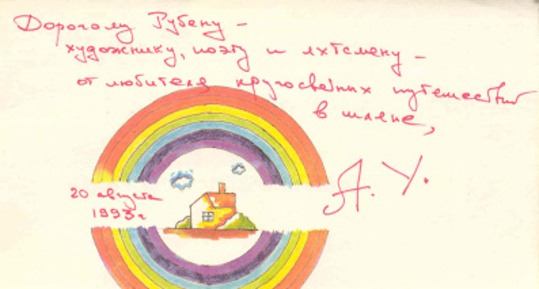 Дорогому Рубену –
художнику, поэту и яхтсмену –
от любителя кругосветных путешествий
в шляпе,
А. У.
20 августа
1993 г